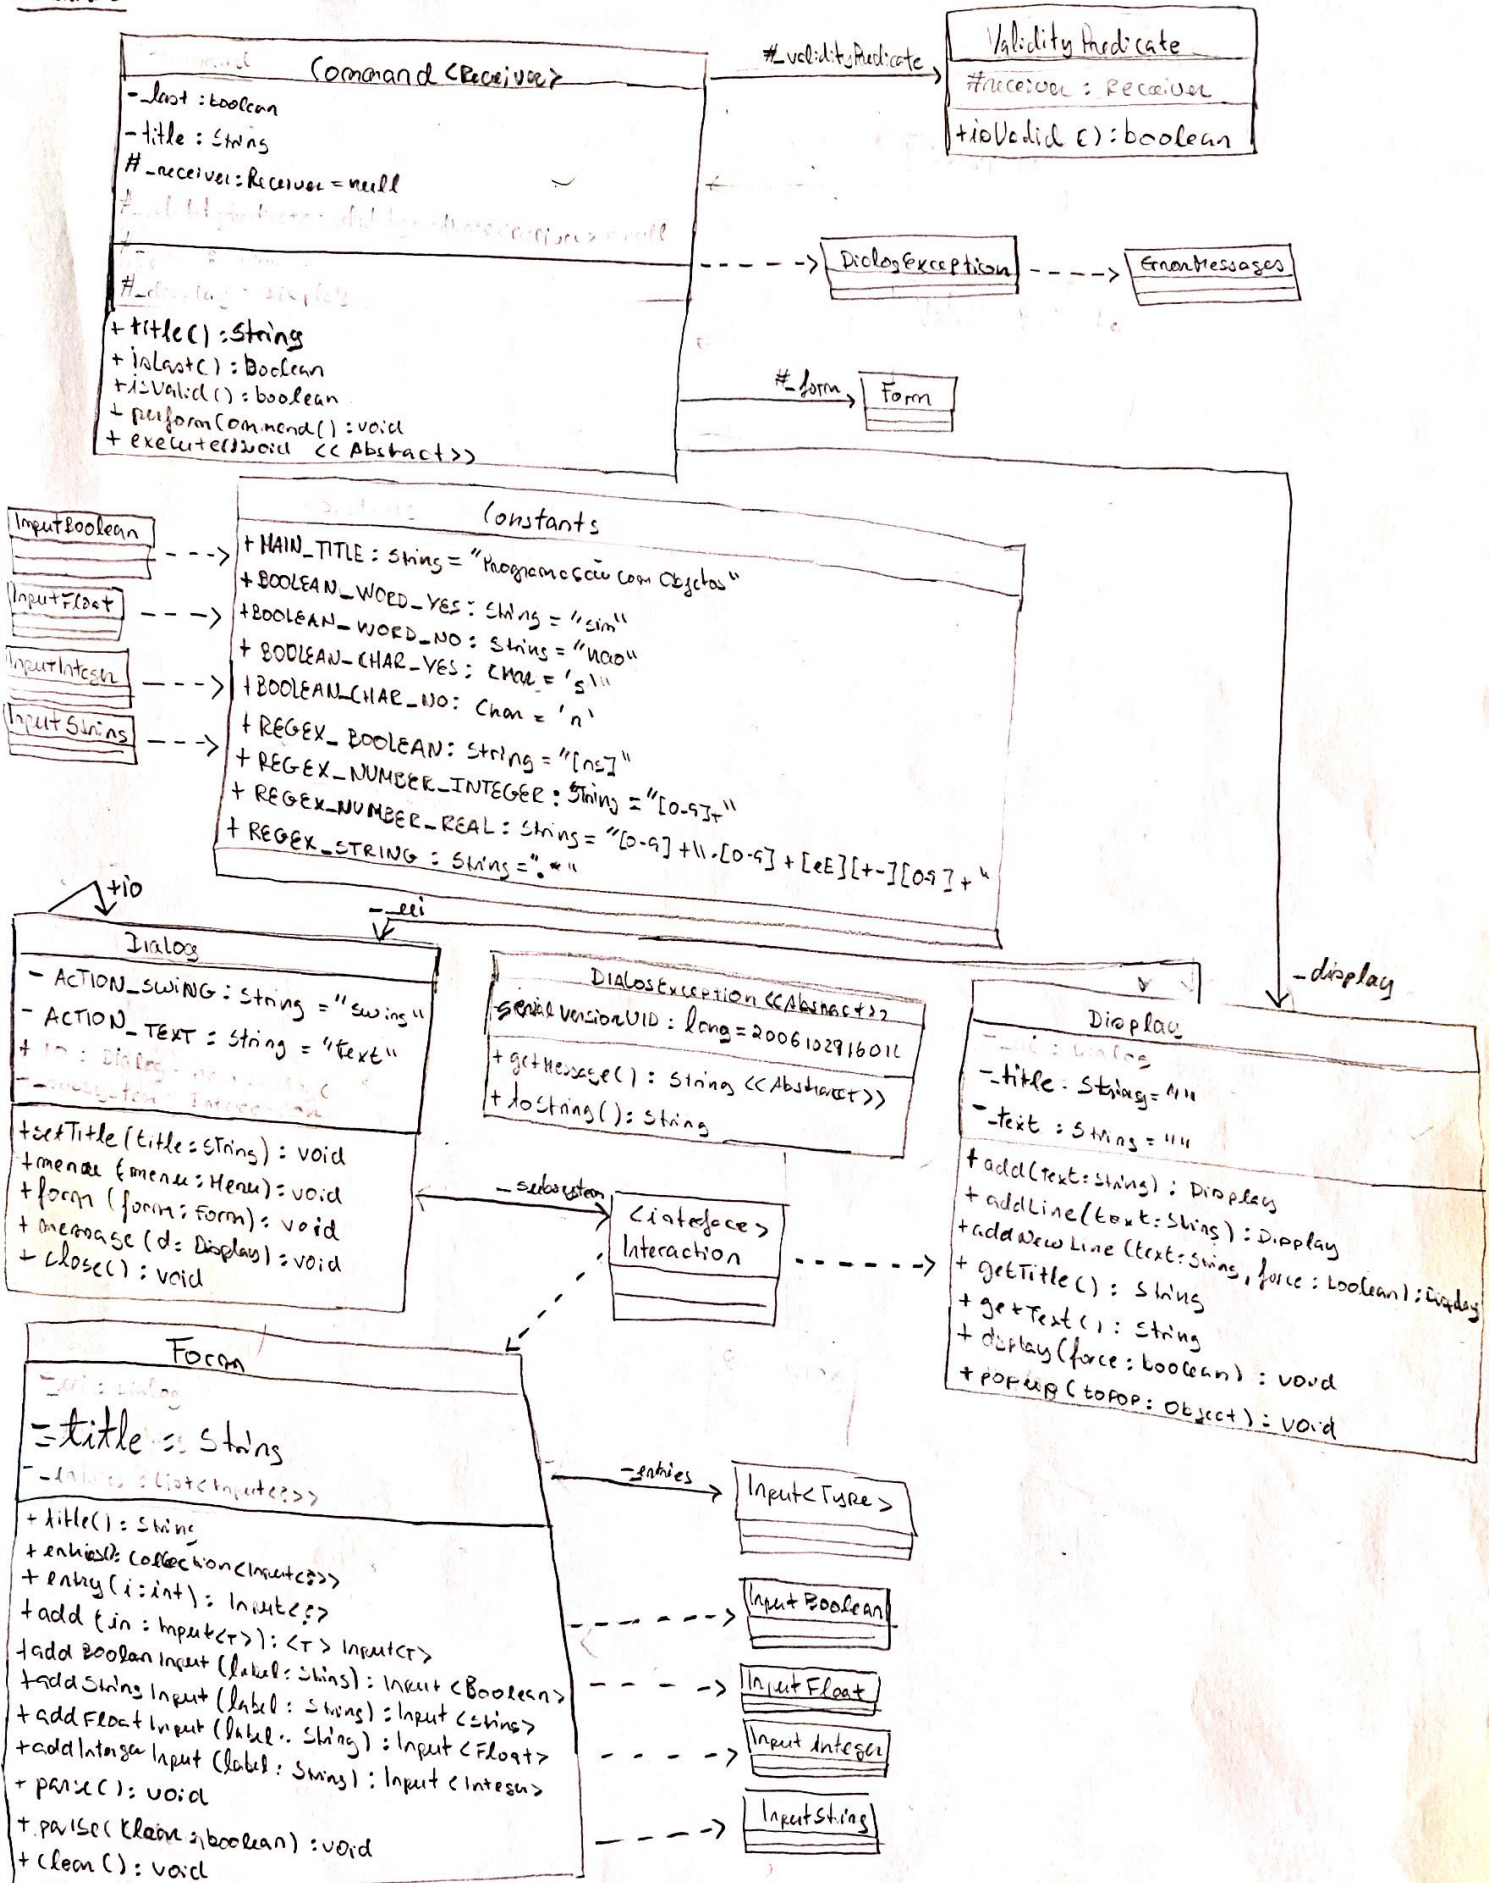 Command <Receiver>
- _last : boolean
- title : String
# _receiver : Receiver = null
+ title() : String
+ isLast() : Boolean
+ isValid() : boolean
+ performCommand() : void
+ execute() : void << Abstract >>
#_validityPredicate
Validity Predicate
#receiver : Receiver
+isValid () : boolean
DialogException
ErrorMessages
#_form
Form
InputBoolean
InputFloat
InputInteger
InputString
Constants
+ MAIN_TITLE : String = "Programação com Objetos"
+ BOOLEAN_WORD_YES : String = "sim"
+BOOLEAN_WORD_NO : String = "nao"
+ BOOLEAN_CHAR_YES : Char = 's'"
+ BOOLEAN_CHAR_NO: Char = 'n'
+ REGEX_BOOLEAN: String = "[ns]"
+ REGEX_NUMBER_INTEGER: String = "[0-9]+"
+ REGEX_NUMBER_REAL : String = "[0-9]+\\.[0-9]+[eE][+-][09]+"
+ REGEX_STRING : String = ".*"
+io
-_ui
_display
Dialog
- ACTION_SWING : String = "swing"
- ACTION_TEXT : String = "text"
+setTitle(title : String) : void
+menu (menu : Menu) : void
+form (form : Form) : void
+ message (d : Display) : void
+ close() : void
DialogException <<Abstract>>
serialVersionUID : long = 200610291601L
+ getMessage() : String << Abstract >>
+ toString() : String
Display
-_ui : Dialog
-_title : String = ""
-_text : String = ""
+ add(text : String) : Display
+ addLine(text : String) : Display
+ addNewLine (text : String, force : boolean) : Display
+ getTitle() : String
+ getText() : String
+ display(force : boolean) : void
+ popup(toPop : Object) : void
_subsystem
<interface>
Interaction
Form
-title : String
-_entries : List<Input<?>>
+ title() : String
+ entries() : Collection<Input<?>>
+ entry(i : int) : Input<?>
+ add (in : Input<T>) : <T> Input<T>
+add Boolean Input (label : String) : Input <Boolean>
+add String Input (label : String) : Input <String>
+ add Float Input (label : String) : Input <Float>
+add Integer Input (label : String) : Input <Integer>
+ parse() : void
+ parse(clear : boolean) : void
+ clear() : void
-_entries
Input<Type>
InputBoolean
InputFloat
InputInteger
InputString